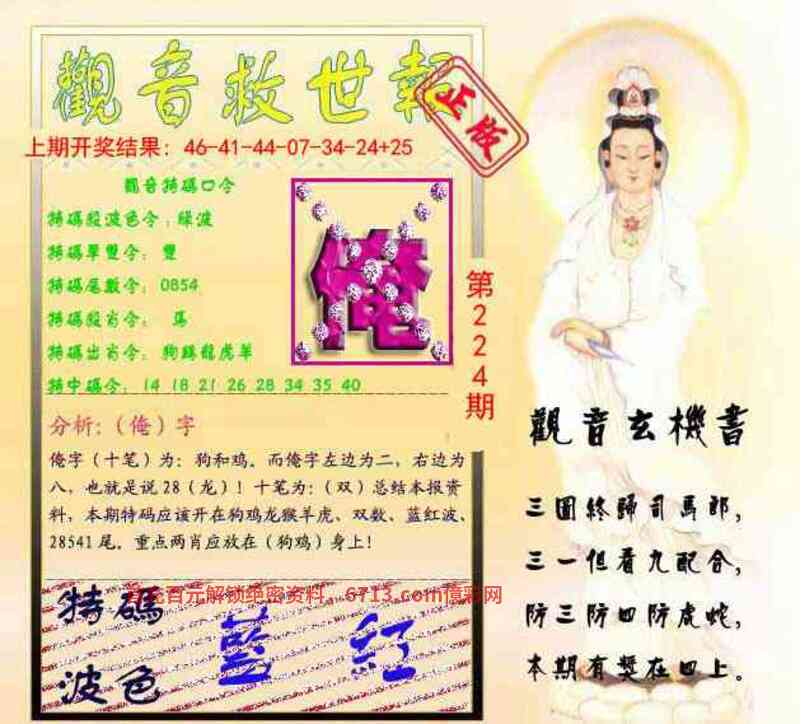 觀音救世報
正版
上期开奖结果：46-41-44-07-34-24+25
觀音特碼口令
特碼殺波色令：綠波
特碼單雙令：雙
特碼尾數令：0854
特碼殺肖令：馬
特碼出肖令：狗雞龍虎羊
特中碼令：14 18 21 26 28 34 35 40
俺
第224期
分析：（俺）字
俺字（十笔）为：狗和鸡。而俺字左边为二，右边为
八，也就是说28（龙）！十笔为：（双）总结本报资
料，本期特码应该开在狗鸡龙猴羊虎、双数、蓝红波、
28541尾。重点两肖应放在（狗鸡）身上！
百元解锁绝密资料，6713.com億彩网
特碼
波色
藍 紅
觀音玄機書
三國終歸司馬郎，
三一但看九配合，
防三防四防虎蛇，
本期有獎在四上。